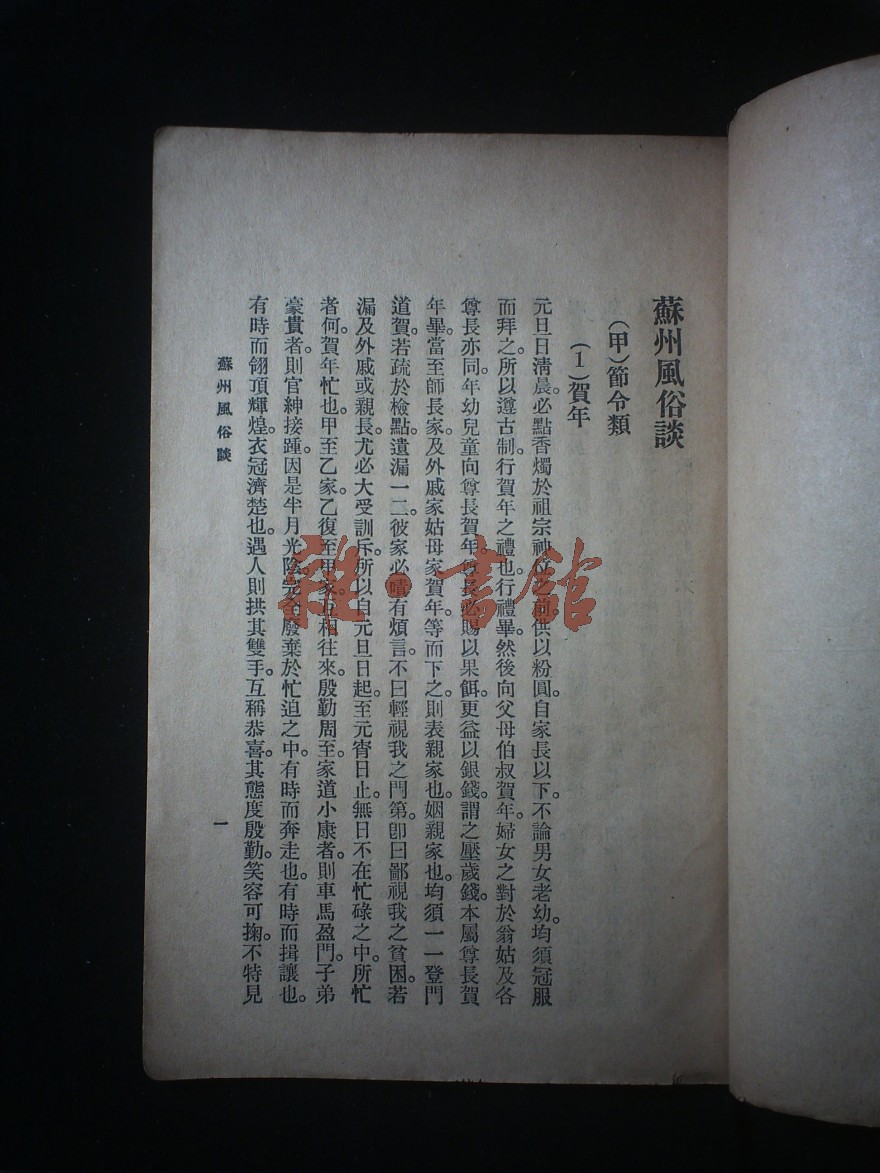 蘇州風俗談
(甲)節令類
(1)賀年
元旦日清晨。必點香燭於祖宗神位之前。供以粉圓。自家長以下。不論男女老幼。均須冠服
而拜之。所以遵古制。行賀年之禮也。行禮畢。然後向父母伯叔賀年。婦女之對於翁姑及各
尊長亦同。年幼兒童。向尊長賀年。尊長必賜以果餌。更益以銀錢。謂之壓歲錢。本屬尊長賀
年畢。當至師長家。及外戚家姑母家賀年。等而下之。則表親家也。姻親家也。均須一一登門
道賀。若疏於檢點。遺漏一二。彼家必嘖有煩言。不曰輕視我之門第。卽曰鄙視我之貧困。若
漏及外戚或親長。尤必大受訓斥。所以自元旦日起。至元宵日止。無日不在忙碌之中。所忙
者何。賀年忙也。甲至乙家。乙復至甲家。互相往來。殷勤周至。家道小康者。則車馬盈門。子弟
豪貴者。則官紳接踵。因是半月光陰。完全廢棄於忙迫之中。有時而奔走也。有時而揖讓也。
有時而翎頂輝煌。衣冠濟楚也。遇人則拱其雙手。互稱恭喜。其態度殷勤。笑容可掬。不特見
蘇州風俗談
一
雜·書館